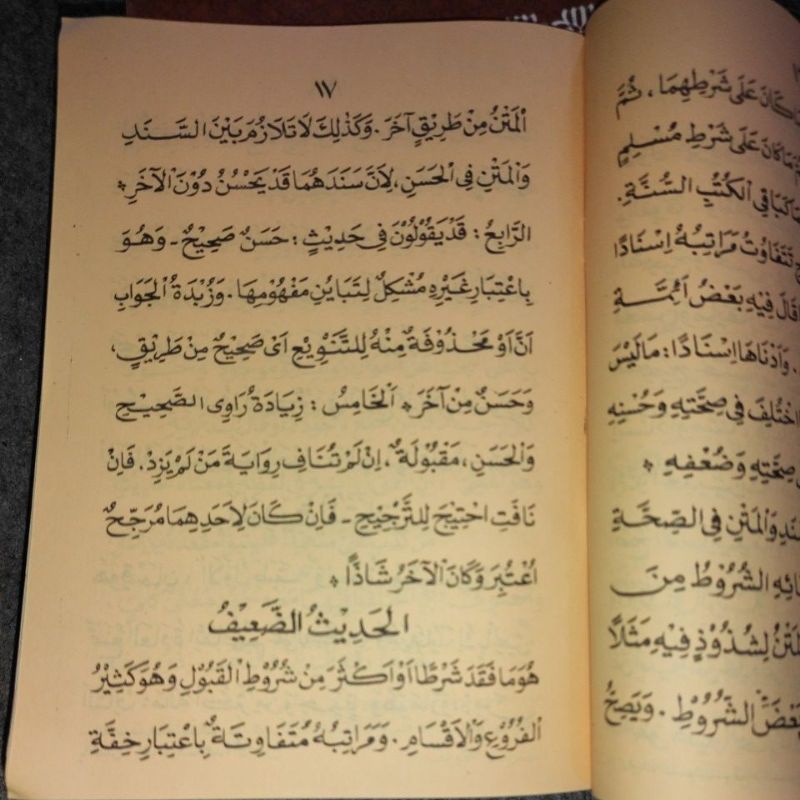 ١٧
اَلْمَتْنُ مِنْ طَرِيْقٍ آخَرَ. وَكَذٰلِكَ لَا تَلَازُمَ بَيْنَ السَّنَدِ
وَالْمَتْنِ فِى الْحَسَنِ، لِاَنَّ سَنَدَهُمَا قَدْ يَحْسُنُ دُوْنَ الْآخَرِ *
الرَّابِعُ : قَدْ يَقُوْلُوْنَ فِى حَدِيْثٍ : حَسَنٌ صَحِيْحٌ - وَهُوَ
بِاعْتِبَارِ غَيْرِهِ مُشْكِلٌ لِتَبَايُنِ مَفْهُوْمِهَا. وَزُبْدَةُ الْجَوَابِ
اَنَّ اَوْ مَحْذُوْفَةٌ مِنْهُ لِلتَّنْوِيْعِ اَىْ صَحِيْحٌ مِنْ طَرِيْقٍ،
وَحَسَنٌ مِنْ آخَرَ * اَلْخَامِسُ : زِيَادَةُ رَاوِى الصَّحِيْحِ
وَالْحَسَنِ، مَقْبُوْلَةٌ، اِنْ لَمْ تُنَافِ رِوَايَةَ مَنْ لَمْ يَزِدْ. فَاِنْ
نَافَتِ احْتِيْجَ لِلتَّرْجِيْحِ - فَاِنْ كَانَ لِاَحَدِهِمَا مُرَجِّحٌ
اعْتُبِرَ وَكَانَ الْآخَرُ شَاذًّا *
الْحَدِيْثُ الضَّعِيْفُ
هُوَ مَا فَقَدَ شَرْطًا اَوْ اَكْثَرَ مِنْ شُرُوْطِ الْقَبُوْلِ وَهُوَ كَثِيْرُ
الْفُرُوْعِ وَالْاَقْسَامِ. وَمَرَاتِبُهُ مُتَفَاوِتَةٌ بِاعْتِبَارِ خِفَّةِ
كَانَ عَلَى شَرْطِهِمَا، ثُمَّ
مَا كَانَ عَلَى شَرْطِ مُسْلِمٍ
كَبَاقِى الْكُتُبِ السُّنَّةِ.
تَتَفَاوَتُ مَرَاتِبُهُ اِسْنَادًا
قَالَ فِيْهِ بَعْضُ اَئِمَّةِ
. وَاَدْنَاهَا اِسْنَادًا : مَالَيْسَ
اخْتُلِفَ فِى صِحَّتِهِ وَحُسْنِهِ
صِحَّتِهِ وَضُعْفِهِ *
وَالْمَتْنِ فِى الصِّحَّةِ
الشُّرُوْطُ مِنَ
لِشُذُوْذٍ فِيْهِ مَثَلًا
بَعْضُ الشُّرُوْطِ. وَيَصِحُّ